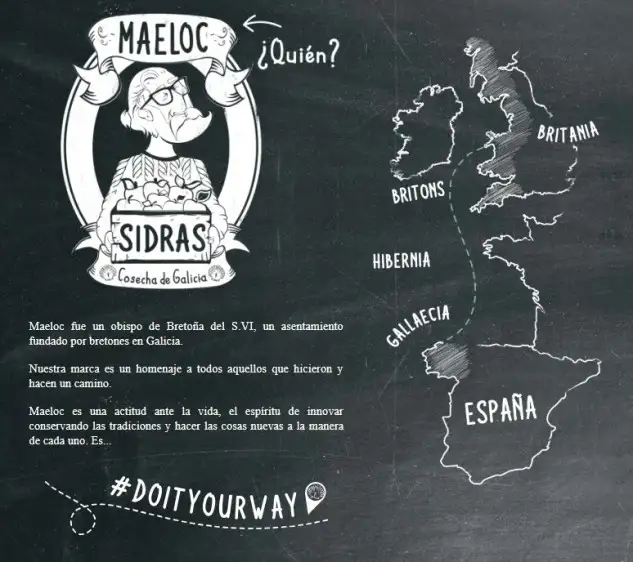 MAELOC
¿Quién?
SIDRAS
Cosecha de Galicia
Maeloc fue un obispo de Bretoña del S.VI, un asentamiento
fundado por bretones en Galicia.
Nuestra marca es un homenaje a todos aquellos que hicieron y
hacen un camino.
Maeloc es una actitud ante la vida, el espíritu de innovar
conservando las tradiciones y hacer las cosas nuevas a la manera
de cada uno. Es...
#DOITYOURWAY
BRITANIA
BRITONS
HIBERNIA
GALLAECIA
ESPAÑA